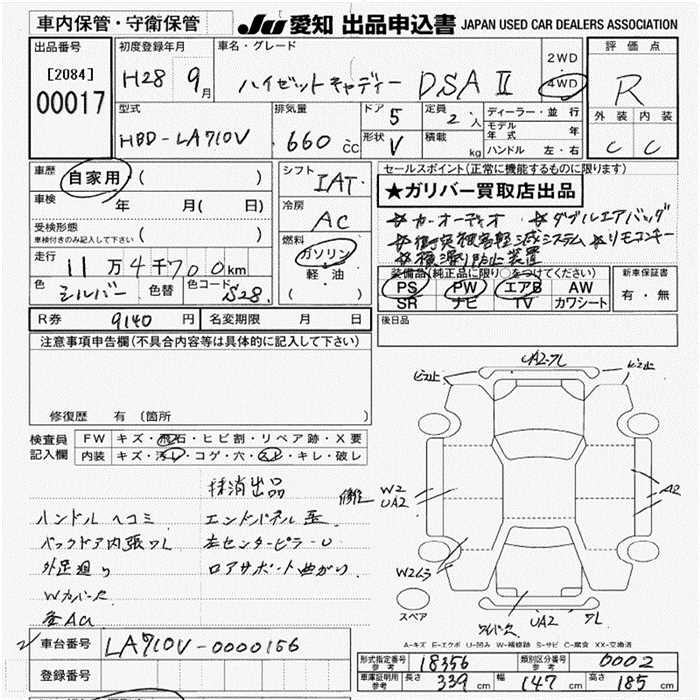 車内保管・守衛保管
JU 愛知 出品申込書 JAPAN USED CAR DEALERS ASSOCIATION
出品番号
[2084]
00017
初度登録年月
H28 9月
車名・グレード
ハイゼットキャディー DSAⅡ
2WD
4WD
評価点
R
外装 内装
C C
型式
HBD-LA710V
排気量
660 cc
ドア 5
形状 V
定員 2 人
積載 kg
ディーラー・並行
モデル年式 年
ハンドル 左・右
車歴 自家用 ( )
車検 年 月( 日)
受検形態
車検付きのみ記入して下さい ( )
走行 11万4千700km
色 シルバー 色替 色コード S28
シフト
IAT
冷房
AC
燃料
ガソリン
軽・油
( )
セールスポイント(正常に機能するものに限ります)
★ガリバー買取店出品
☆カーオーディオ ☆ダブルエアバッグ
☆衝突被害軽減システム ☆リモコンキー
☆横滑り防止装置
装備品(純正品に限り○をつけてください)
PS PW エアB AW
SR ナビ TV カワシート
新車保証書
有・無
R券 9140 円 名変期限 月 日
後日品
注意事項申告欄(不具合内容等は具体的に記入して下さい)
修復歴 有 (箇所 )
検査員記入欄
FW キズ・飛石・ヒビ割・リペア跡・X要
内装 キズ・汚レ・コゲ・穴・スレ・キレ・破レ
抹消出品
ハンドル ヘコミ エンドパネル歪
バックドア内張ワレ 左センターピラーU
外足廻り ロアサポート曲がり
Wカバーズ
UA2・ワレ
ビス止
ビス止
W2
UA2
A2
W2ム3
UA2 ワレ
スペア
A-キズ E-エクボ U-凹み W-補修跡 S-サビ C-腐食 XX-交換済
車台番号 LA710V-0000156
登録番号
形式指定番号 参考 18356
類別区分番号 参考 0002
車庫証明用 参考 長さ 339 cm 幅 147 cm 高さ 185 cm